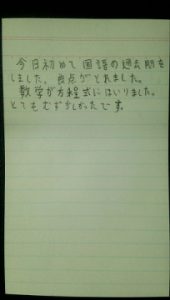 今日初めて国語の過去問を
しました。良点がとれました。
数学が方程式にはいりました。
とてもむずかしかったです。